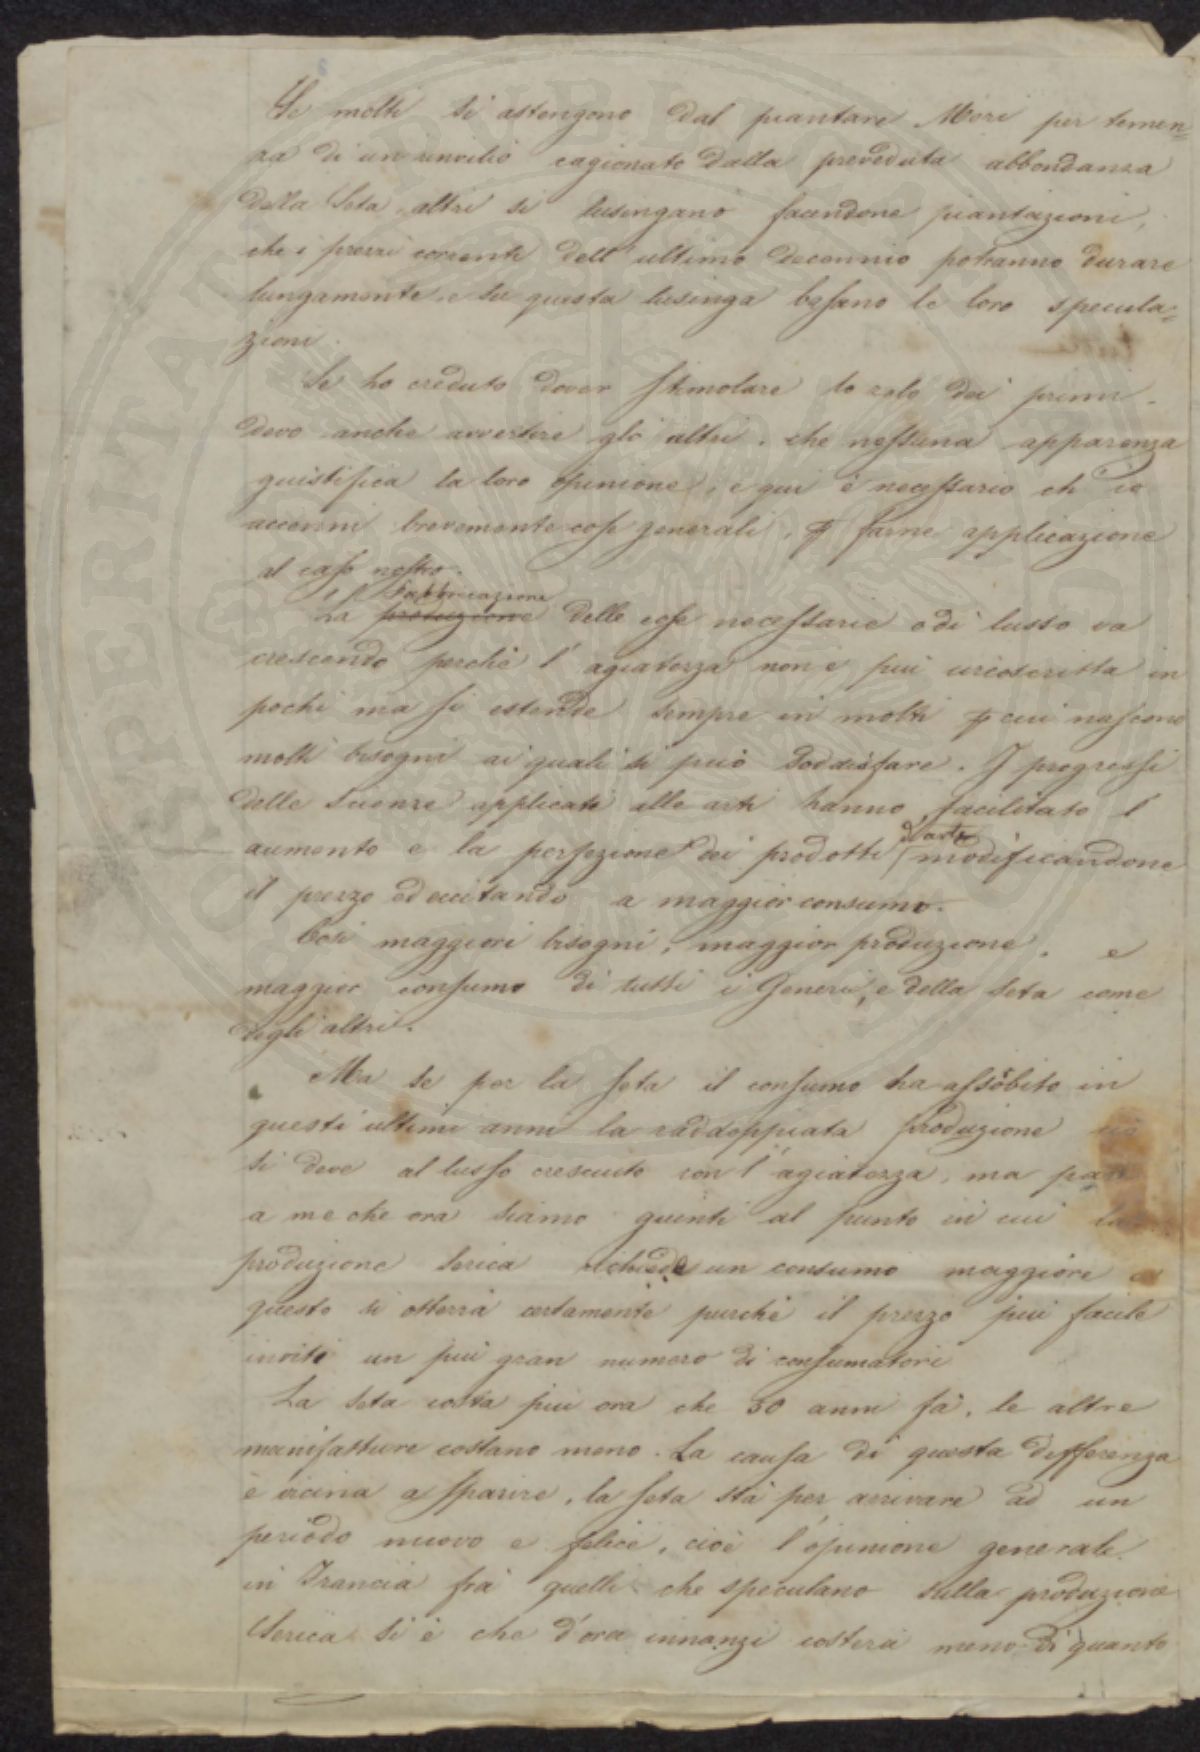 Se molti si astengono dal piantare Mori per temen=
za di un rinvilio cagionato dalla preveduta abbondanza
della Seta, altri si lusingano facendone piantazioni,
che i prezzi correnti dell'ultimo decennio potranno durare
lungamente, e su questa lusinga basano le loro specula=
zioni.
Se ho creduto dover stimolare lo zelo dei primi
devo anche avvertire gli altri, che nessuna apparenza
guistifica la loro opinione, e qui è necessario ch'io
accenni brevemente cose generali, p farne applicazione
al caso nostro.
Fabbricazione
La produzione delle cose necessarie o di lusso va
crescendo perchè l'agiatezza non è più circoscritta in
pochi ma si estende sempre in molti p cui nascono
molti bisogni ai quali si può soddisfare. I progressi
delle scienze applicati alle arti hanno facilitato l'
d'arte
aumento e la perfezione dei prodotti modificandone
il prezzo ed eccitando a maggior consumo.
Così maggiori bisogni, maggior produzione, e
maggior consumo di tutti i Generi, e della seta come
degli altri.
Ma se per la seta il consumo ha assorbito in
questi ultimi anni la raddoppiata produzione ciò
si deve al lusso cresciuto con l'agiatezza, ma pare
a me che ora siamo giunti al punto in cui la
produzione serica richiede un consumo maggiore e
questo si otterrà certamente purchè il prezzo più facile
inviti un più gran numero di consumatori
La seta costa più ora che 50 anni fà, le altre
manifatture costano meno. La causa di questa differenza
è vicina a sparire, la seta stà per arrivare ad un
periodo nuovo e felice, cioè l'opinione generale
in Francia frà quelli che speculano sulla produzione
Serica si è che d'ora innanzi costerà meno di quanto